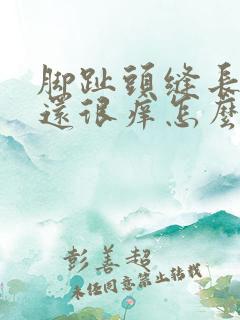 脚趾頭縫長
還很痒怎麼
彭善超
未经同意禁止转载